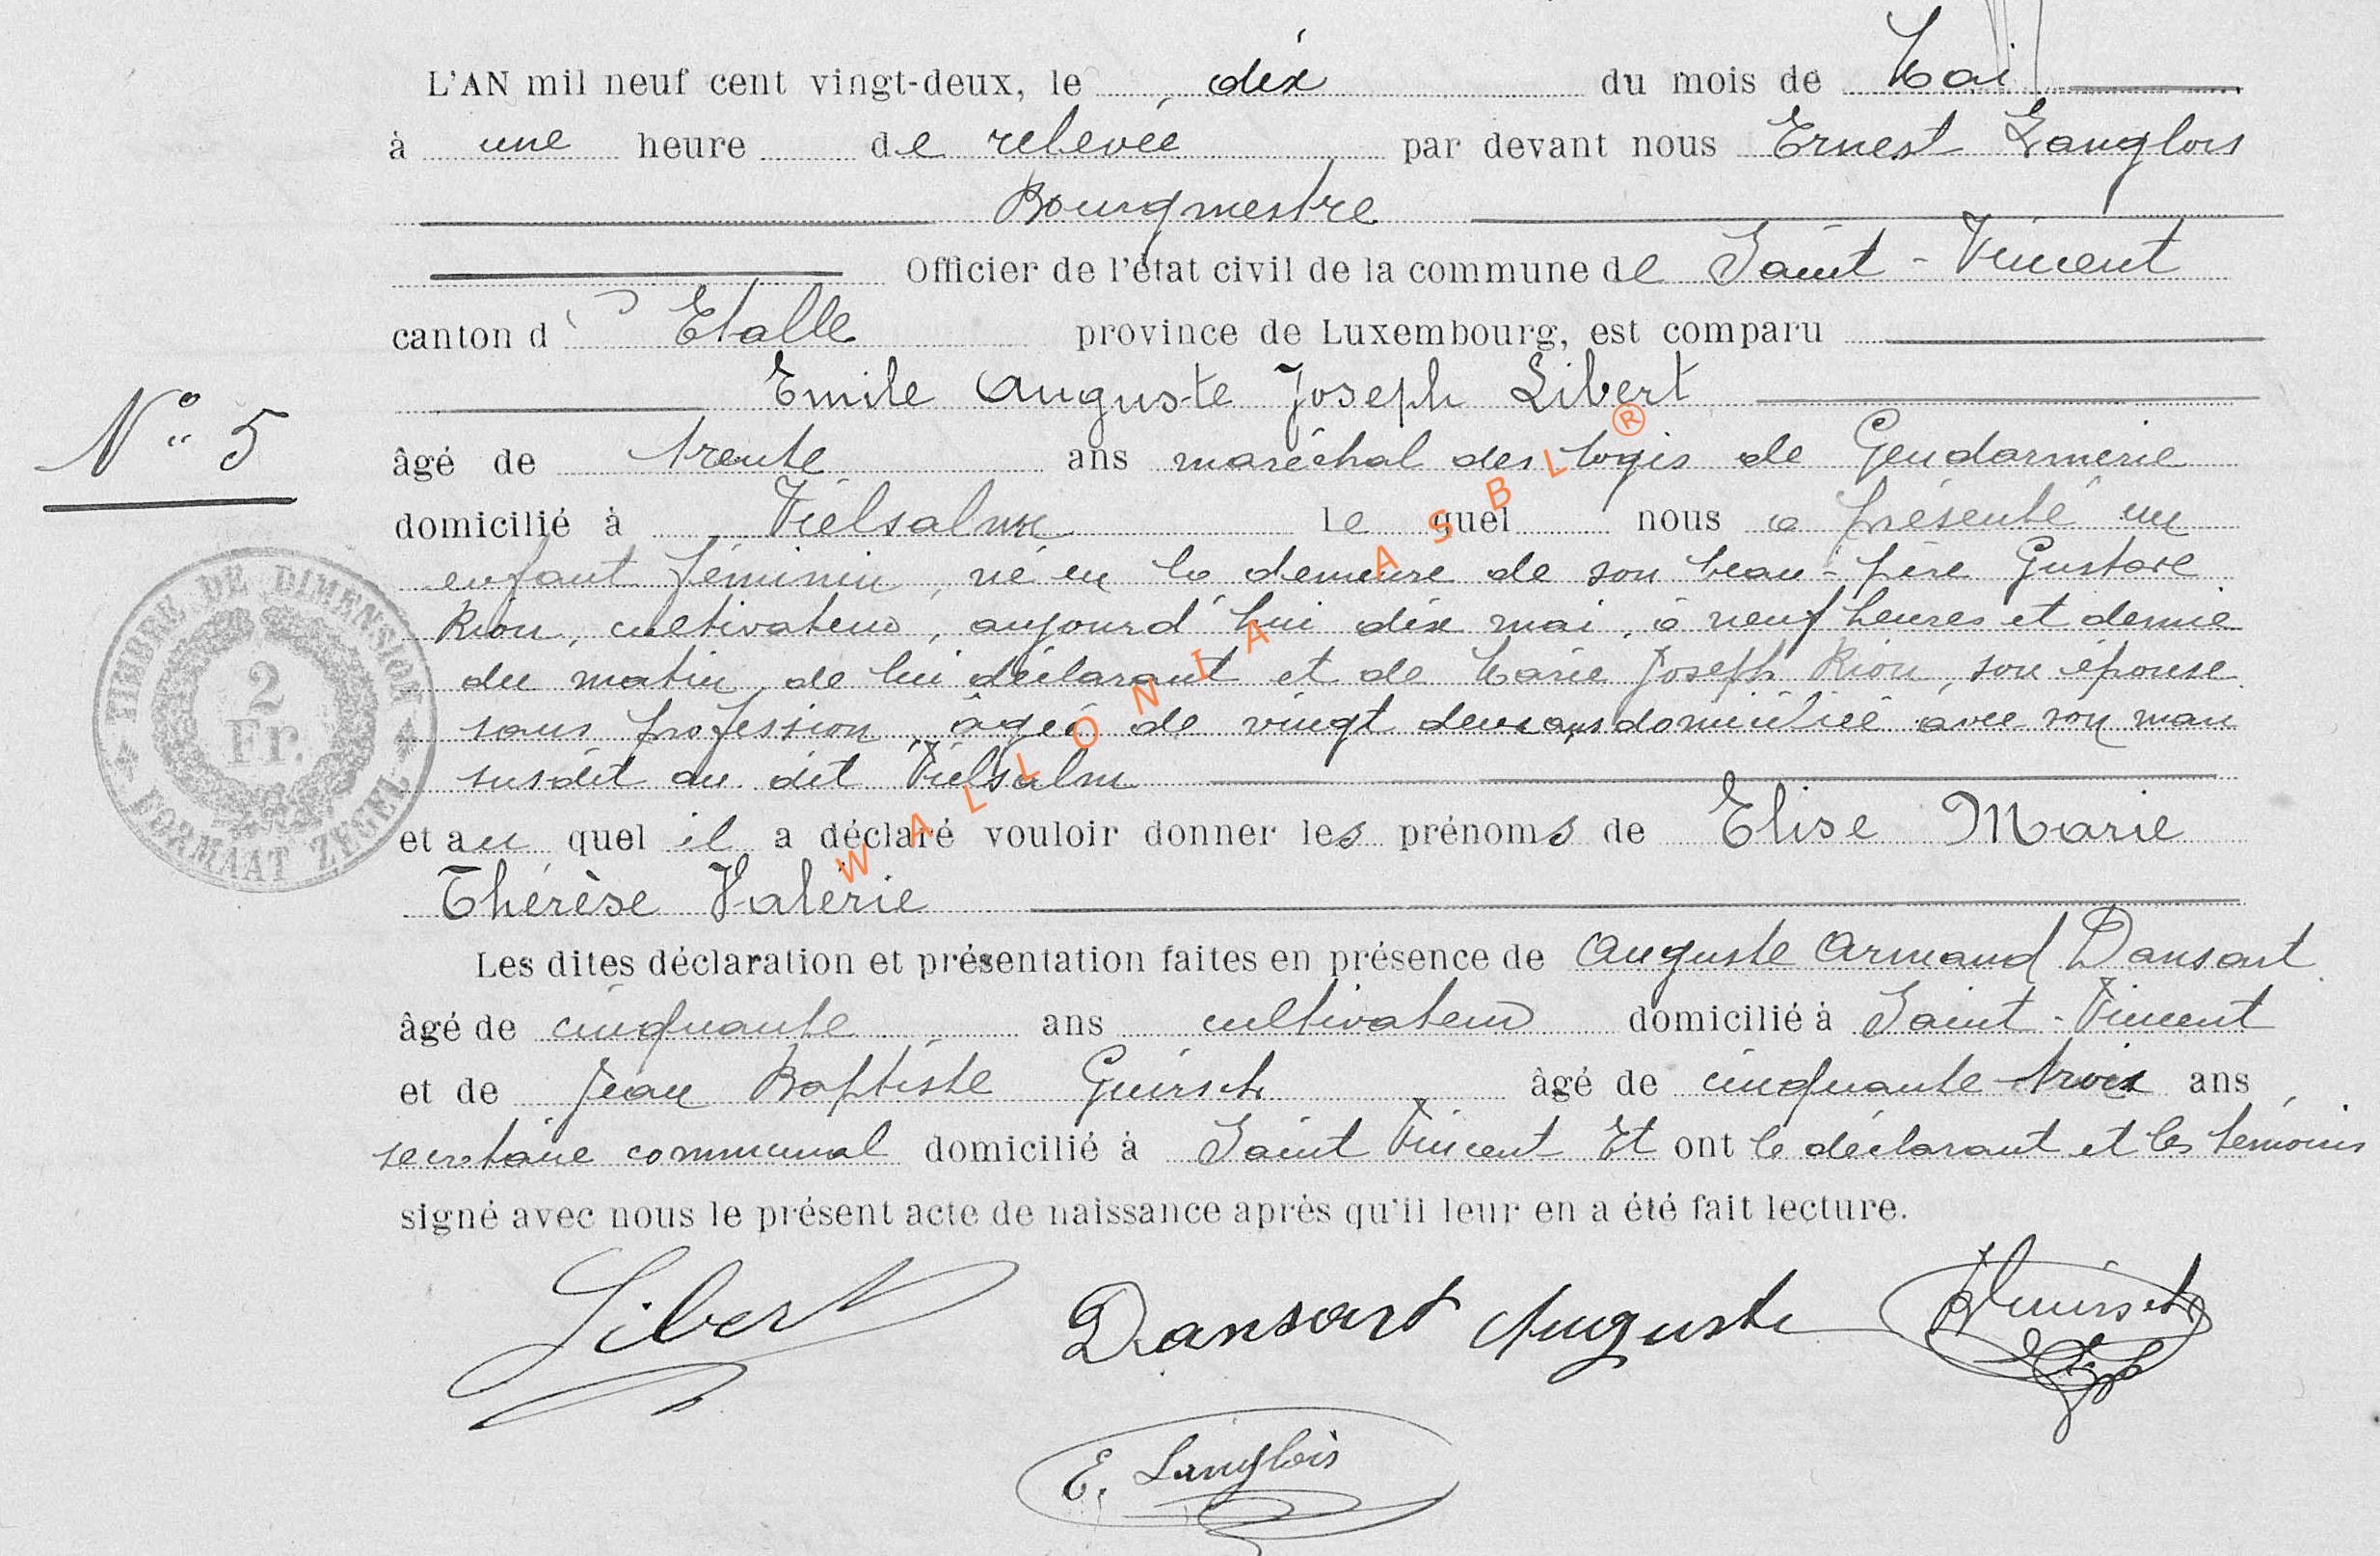 L'AN mil neuf cent vingt-deux, le dix du mois de Mai
à une heure de relevée par devant nous Ernest Langlois
Bourgmestre
Officier de l'état civil de la commune de Saint-Vincent
canton d'Etalle province de Luxembourg, est comparu
Emile Auguste Joseph Libert
N° 5
âgé de trente ans maréchal des logis de Gendarmerie
domicilié à Vielsalm le quel nous a présenté un
enfant féminin, né en la demeure de son beau-père Gustave
Rion, cultivateur, aujourd'hui dix mai, à neuf heures et demie
du matin, de lui déclarant et de Marie Joseph Rion, son épouse
sans profession, âgée de vingt deux ans domiciliée avec son mari
susdit au dit Vielsalm
et au quel il a déclaré vouloir donner les prénoms de Elise Marie
Thérèse Valérie
Les dites déclaration et présentation faites en présence de Auguste Armand Dansart
âgé de cinquante ans cultivateur domicilié à Saint-Vincent
et de Jean Baptiste Guirsch âgé de cinquante trois ans
secrétaire communal domicilié à Saint Vincent Et ont le déclarant et les témoins
signé avec nous le présent acte de naissance après qu'il leur en a été fait lecture.
Libert Dansart Auguste Guirsch
E. Langlois
TIMBRE DE DIMENSION
2
Fr.
FORMAAT ZEGEL
WALLONIA ASBL ®